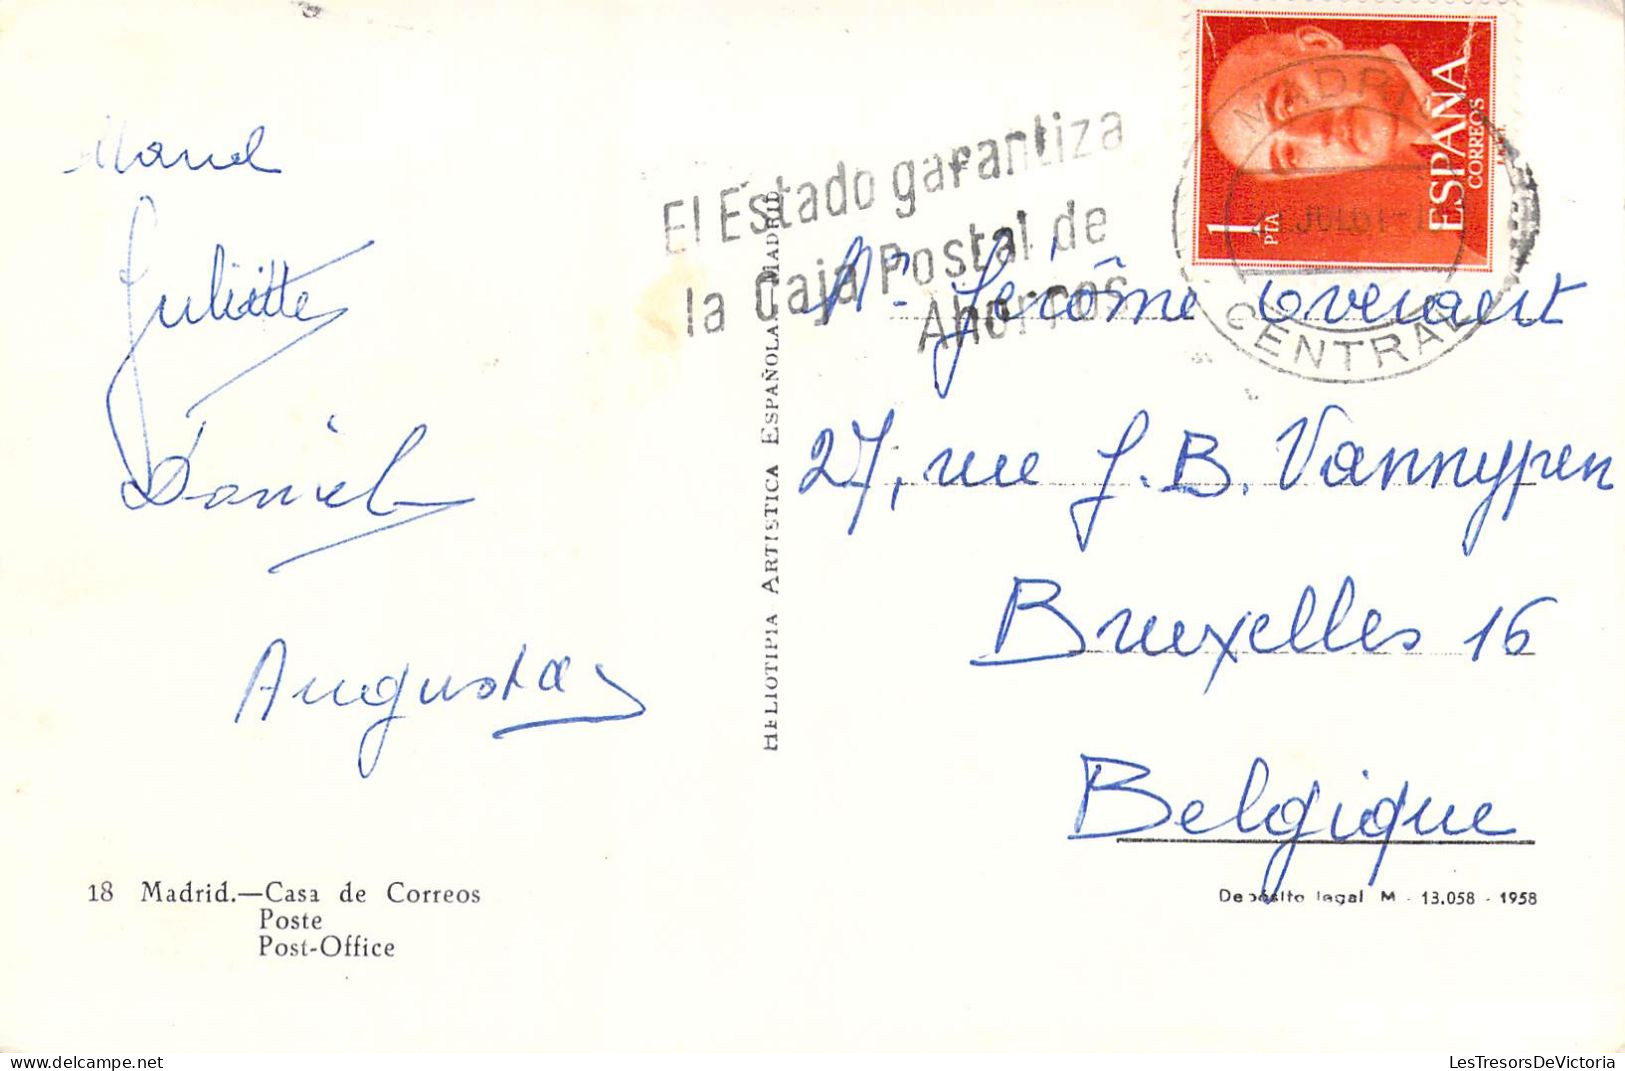 Juliette
Daniel
Augusta
18 Madrid.—Casa de Correos
Poste
Post-Office
HELIOTIPIA ARTISTICA ESPAÑOLA. MADRID
El Estado garantiza
la Caja Postal de
Ahorros
MADRID
CENTRAL
1
PTA
ESPAÑA
CORREOS
Mr Jérôme
27, rue J. B. Vannypen
Bruxelles 16
Belgique
Depósito legal M - 13.058 - 1958
LesTresorsDeVictoria